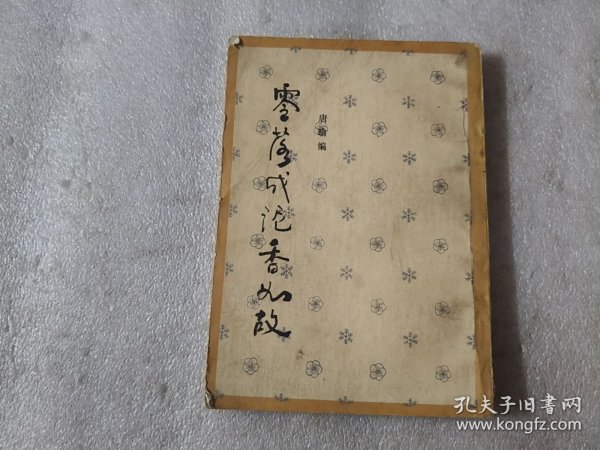 零落成泥香如故
唐瑜编
孔夫子旧書网
www.kongfz.com